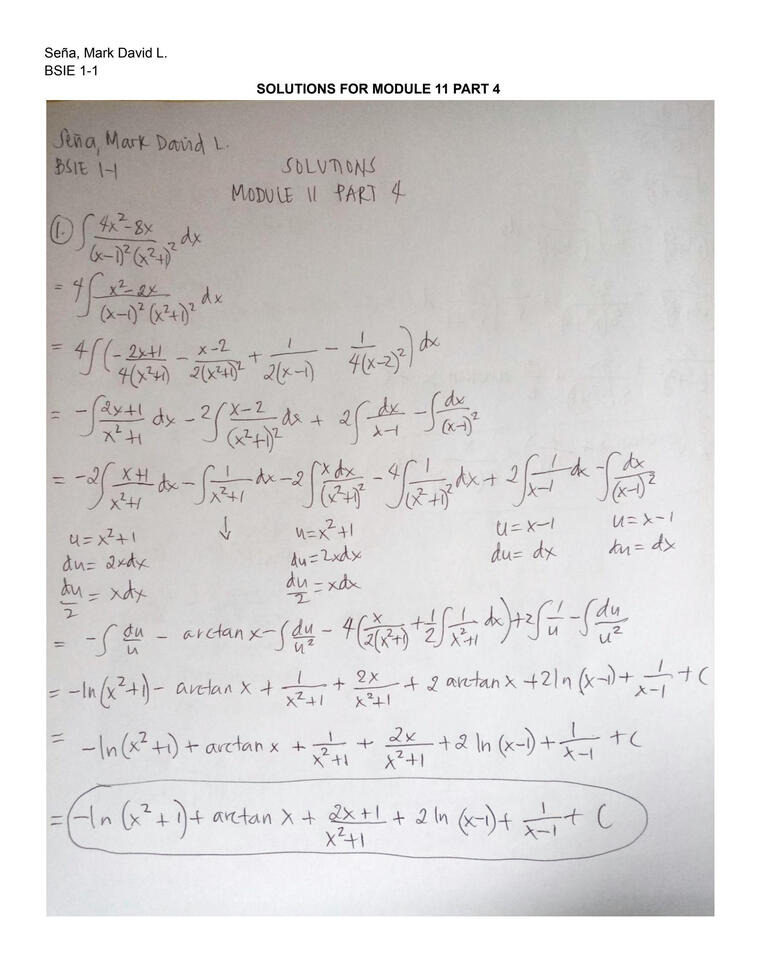 Seña, Mark David L.
BSIE 1-1
SOLUTIONS FOR MODULE 11 PART 4
Seña, Mark David L.
BSIE 1-1
SOLUTIONS
MODULE 11 PART 4
1. ∫ (4x²-8x)/((x-1)²(x²+1)²) dx
= 4∫ (x²-2x)/((x-1)²(x²+1)²) dx
= 4∫(- (2x+1)/(4(x²+1)) - (x-2)/(2(x²+1)²) + 1/(2(x-1)) - 1/(4(x-2)²)) dx
= -∫ (2x+1)/(x²+1) dx - 2∫ (x-2)/(x²+1)² dx + 2∫ dx/(x-1) - ∫ dx/(x-1)²
= -2∫ (x+1)/(x²+1) dx - ∫ 1/(x²+1) dx - 2∫ x dx/(x²+1)² - 4∫ 1/(x²+1)² dx + 2∫ 1/(x-1) dx - ∫ dx/(x-1)²
u = x²+1 ↓ u = x²+1 u = x-1 u = x-1
du = 2xdx du = 2xdx du = dx du = dx
du/2 = xdx du/2 = xdx
= -∫ du/u - arctan x - ∫ du/u² - 4(x/(2(x²+1)) + 1/2 ∫ 1/(x²+1) dx) + 2∫ 1/u - ∫ du/u²
= -ln(x²+1) - arctan x + 1/(x²+1) + 2x/(x²+1) + 2 arctan x + 2 ln(x-1) + 1/(x-1) + C
= -ln(x²+1) + arctan x + 1/(x²+1) + 2x/(x²+1) + 2 ln(x-1) + 1/(x-1) + C
= -ln(x²+1) + arctan x + (2x+1)/(x²+1) + 2 ln(x-1) + 1/(x-1) + C